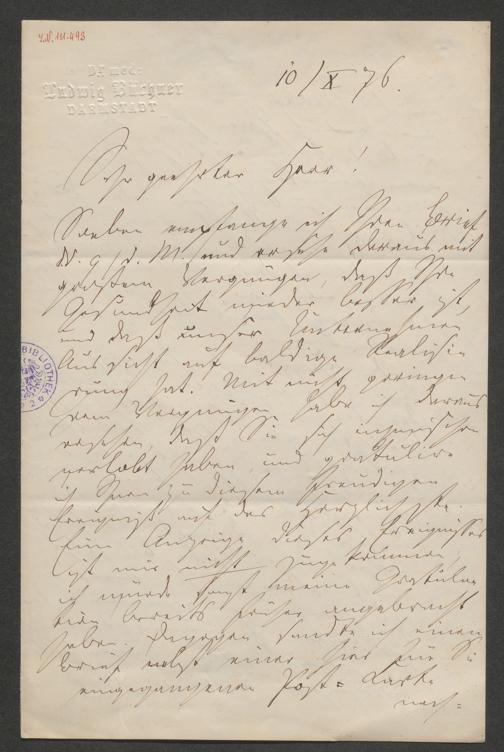 I.N. 111.493
Dr. med.
Ludwig Büchner
DARMSTADT
10/X 76.
Sehr geehrter Herr!
Soeben empfange ich Ihren Brief
v. 9 / d. M. und ersehe daraus mit
großem Vergnügen, daß Ihre
Gesundheit wieder besser ist,
und daß unser Unternehmen
Aussicht auf baldige Realisi-
rung hat. Mit nicht geringe-
rem Vergnügen habe ich daraus
ersehen, daß Sie sich inzwischen
verlobt haben, und gratulire
ich Ihnen zu diesem freudigen
Ereigniß auf das Herzlichste.
Eine Anzeige dieses Ereignisses
ist mir nicht zugekommen,
ich würde sonst meine Gratula-
tion bereits früher angebracht
haben. Dagegen sandte ich einen
Brief nebst einer hier für Sie
eingegangenen Post-Karte
nach-
BIBLIOTHEK